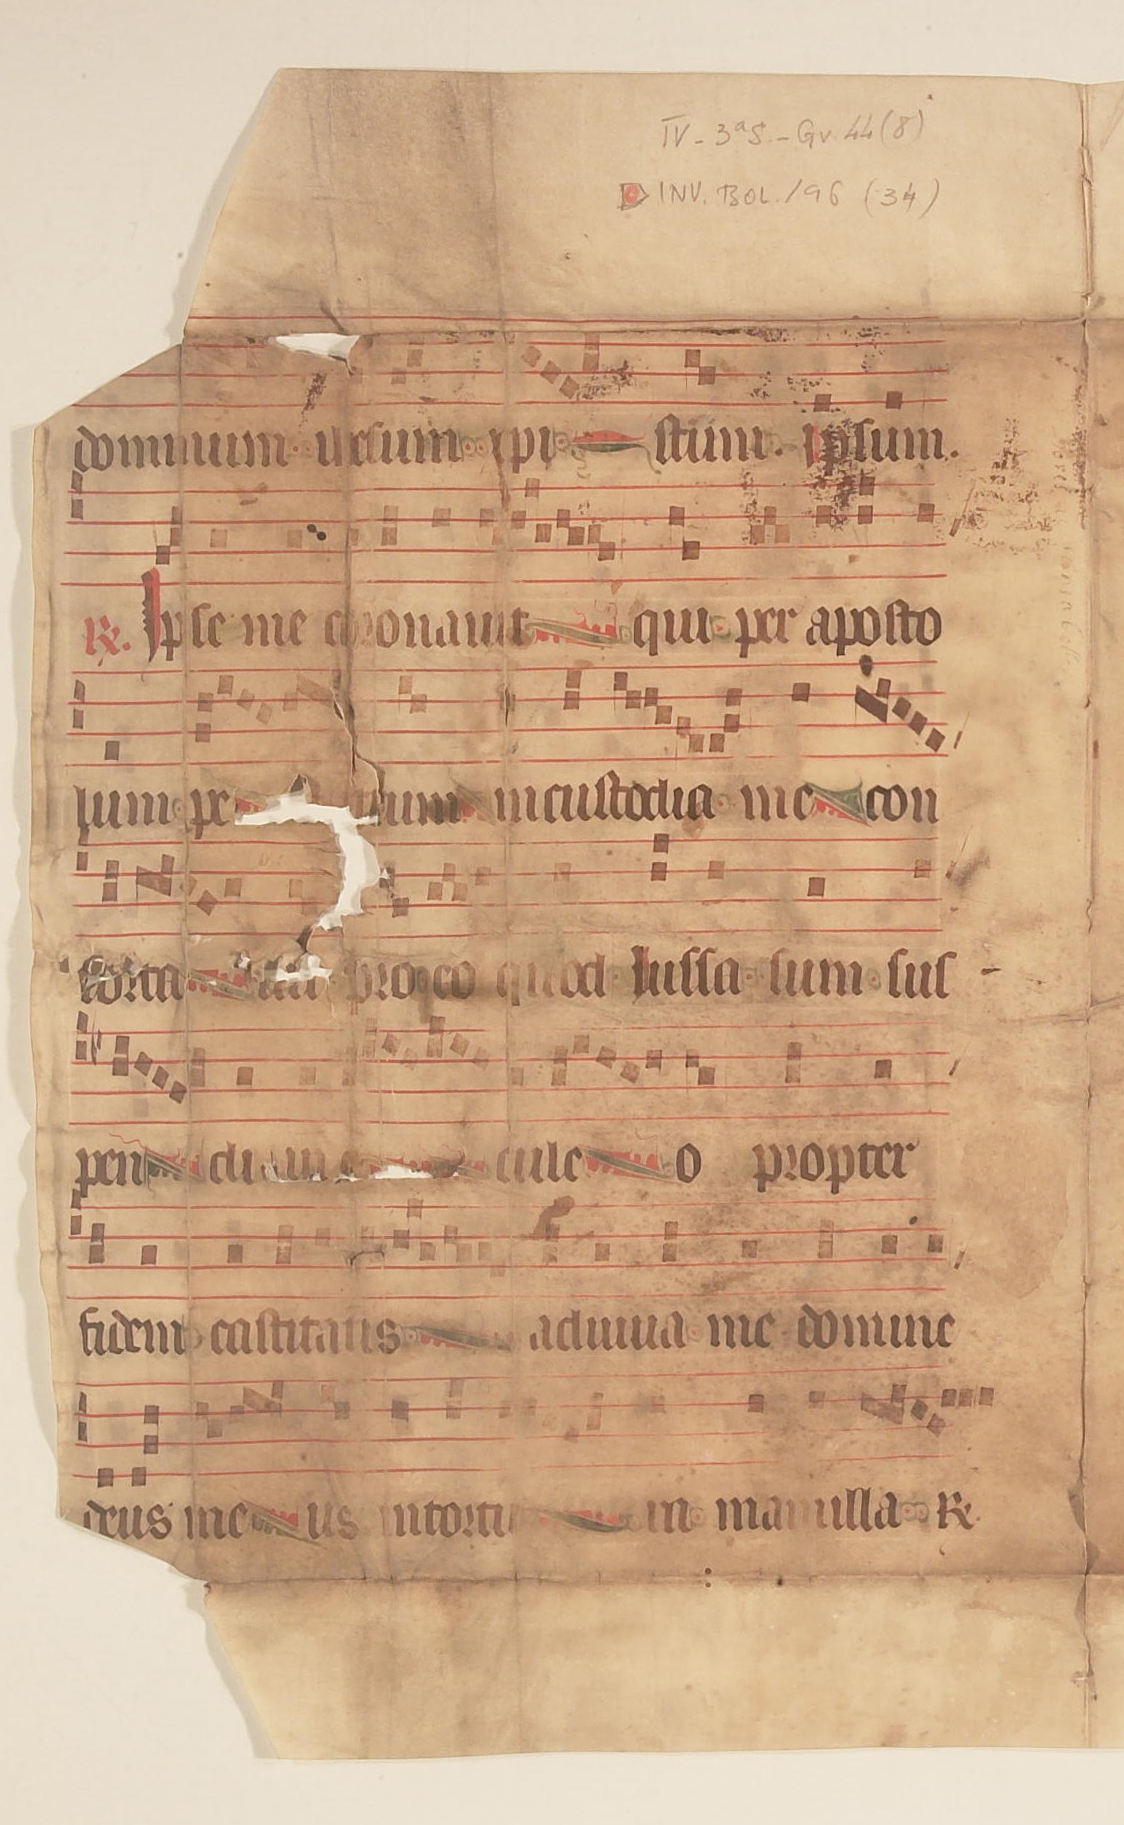 IV - 3ª S. - Gv. 44 (8)
INV. BOL. / 96 (34)
dominum ihesum xpi stum. ipsum.
R. Ipse me coronauit qui per aposto
lum pe trum in custodia me con
forta uit pro eo quod iussa sum sus
pen di in cule o propter
fidem castitatis adiuua me domine
deus me us in torti in mamilla R.